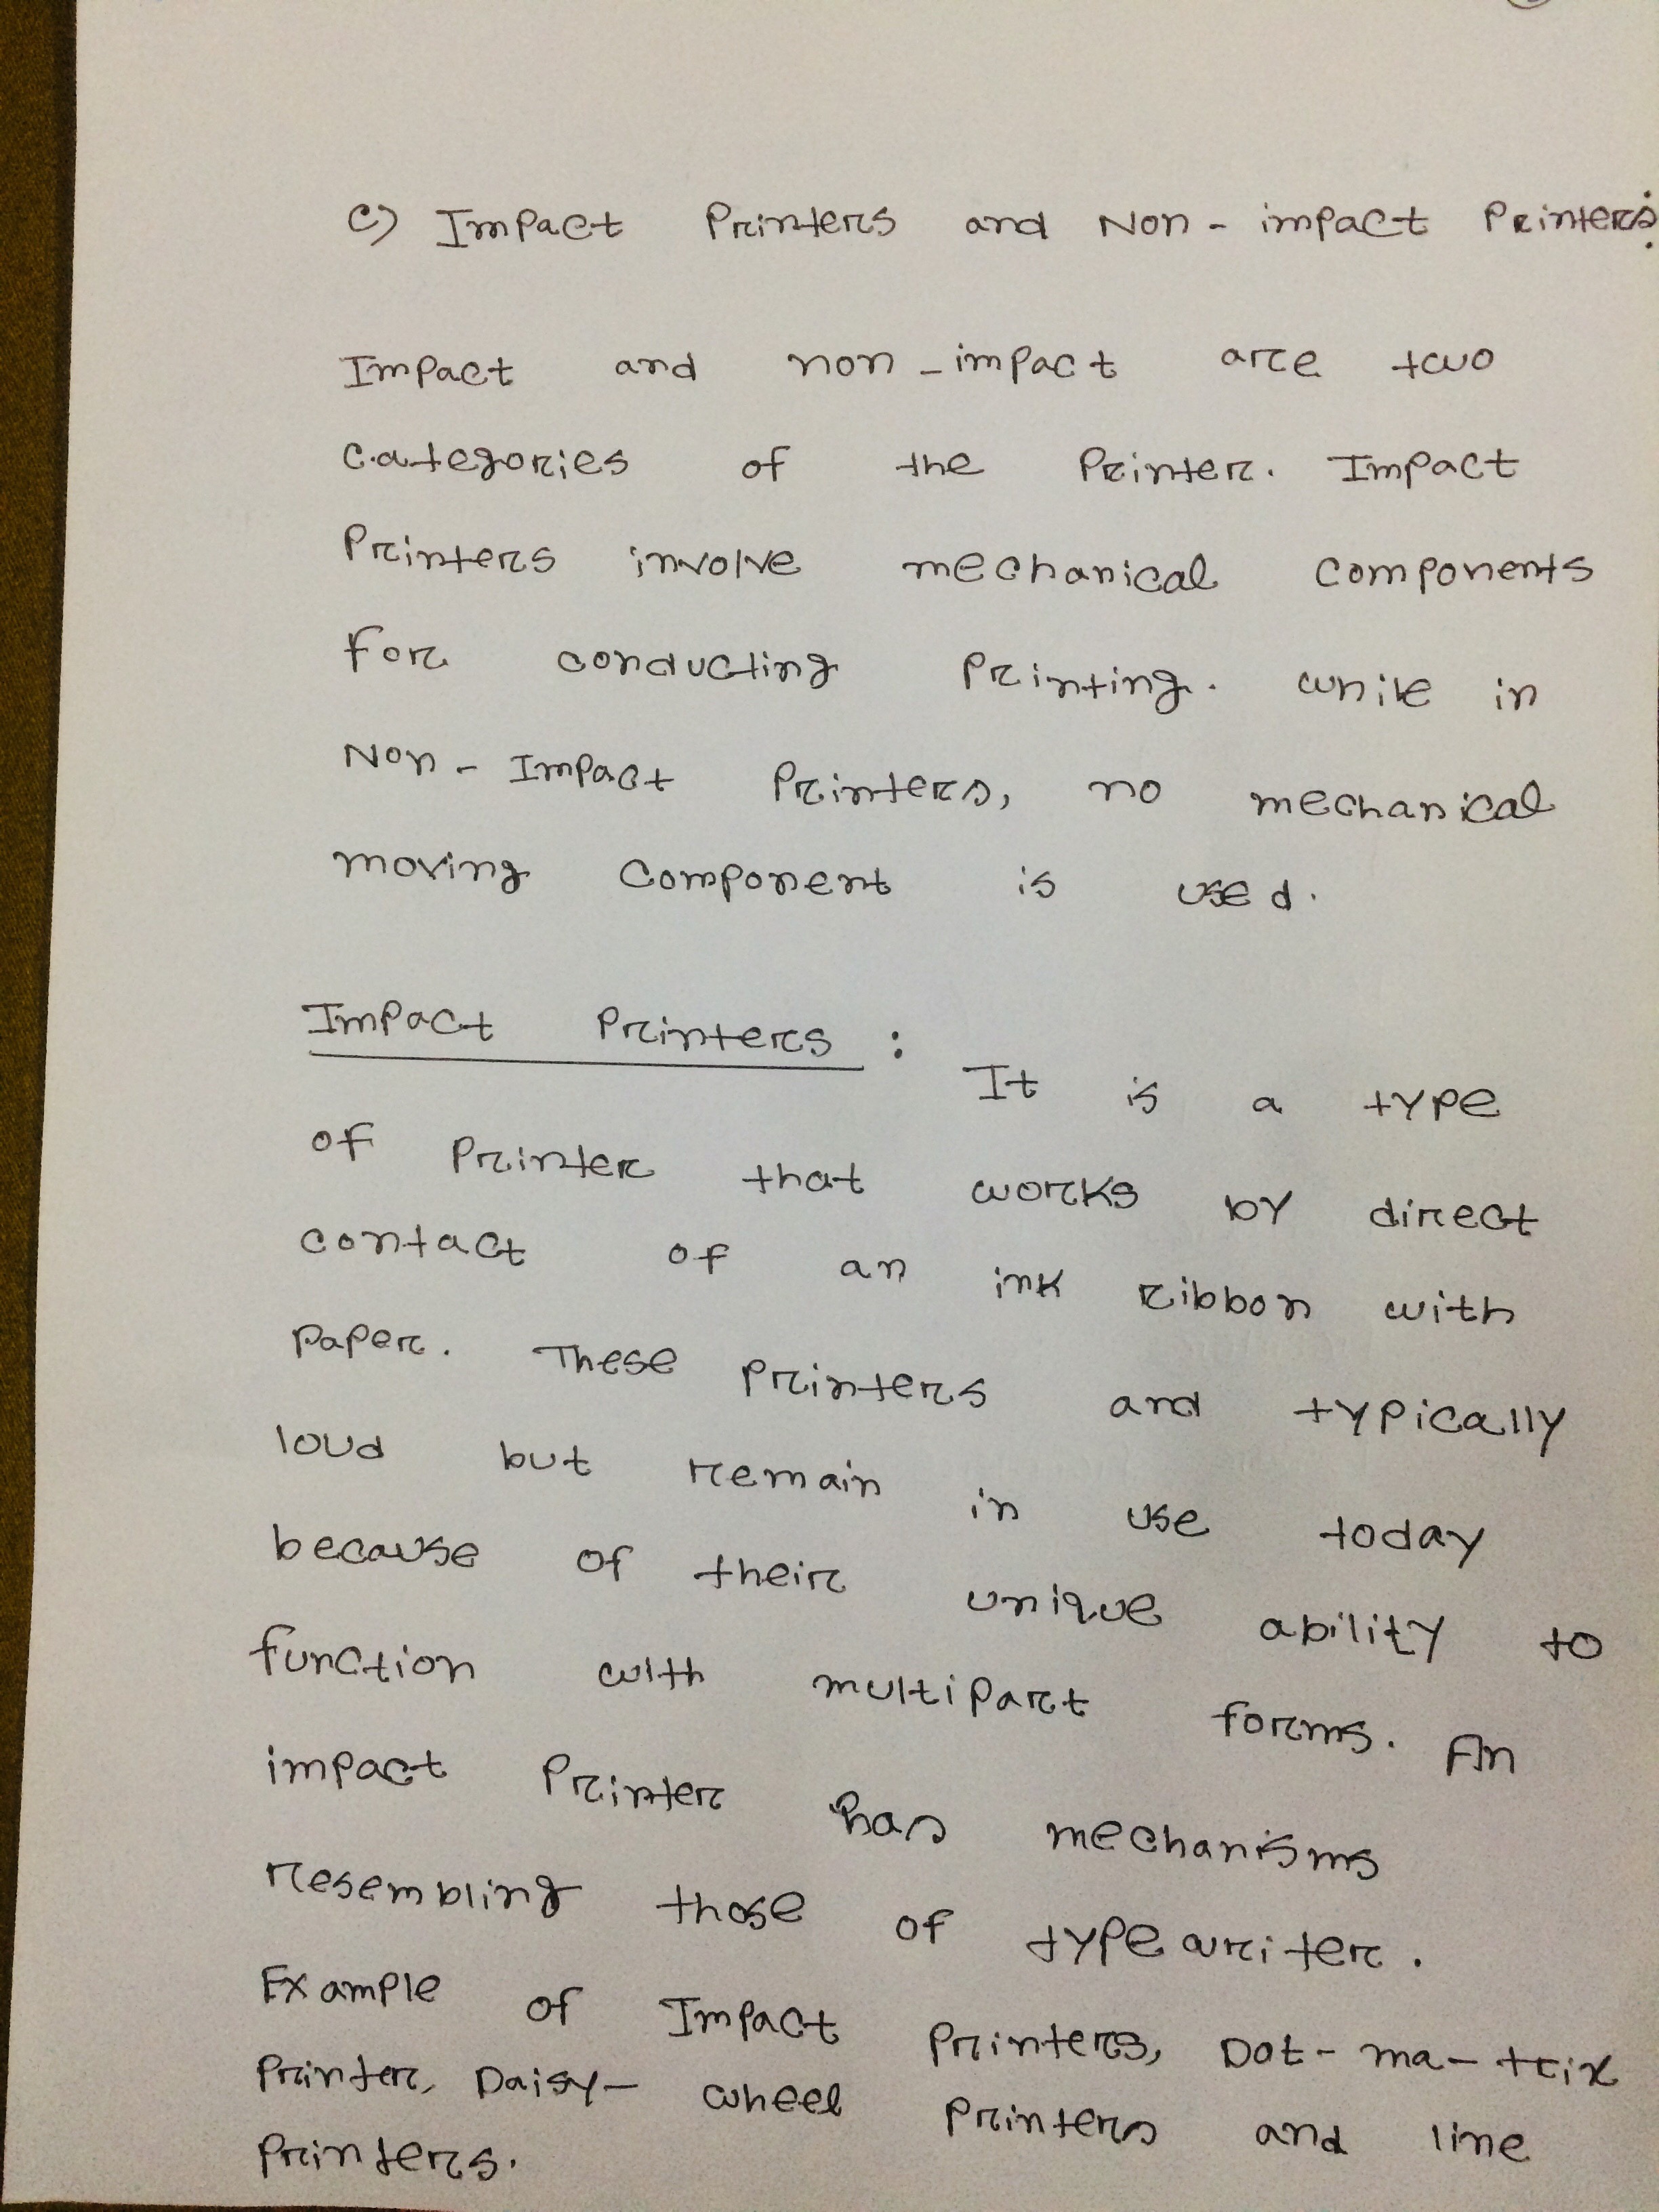 c) Impact Printers and Non-impact Printers:
Impact and non-impact are two
categories of the Printer. Impact
Printers involve mechanical components
for conducting Printing. while in
Non-Impact Printers, no mechanical
moving component is used.
Impact Printers : It is a type
of Printer that works by direct
contact of an ink ribbon with
paper. These printers and typically
loud but remain in use today
because of their unique ability to
function with multipart forms. An
impact Printer has mechanisms
resembling those of typewriter.
Example of Impact Printers, Dot-ma-trix
Printer, Daisy-wheel Printers and line
Printers.